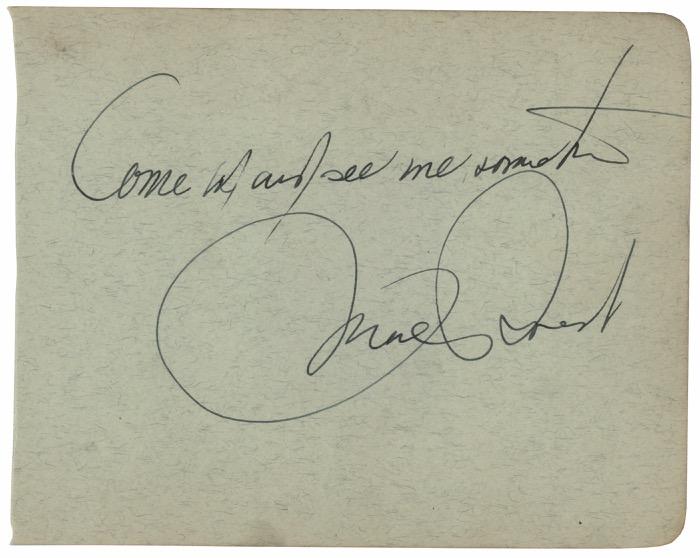 Come up and see me sometime
Mae West